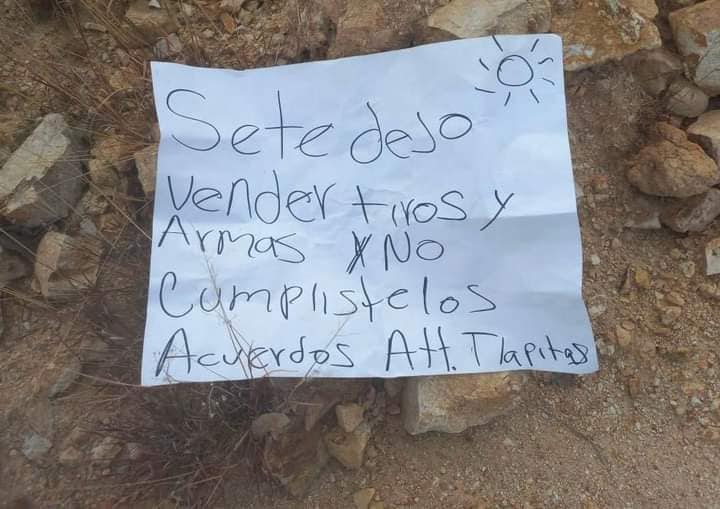 Sete dejo
vender tiros y
Armas y No
Cumplistelos
Acuerdos Att. Tlapitas